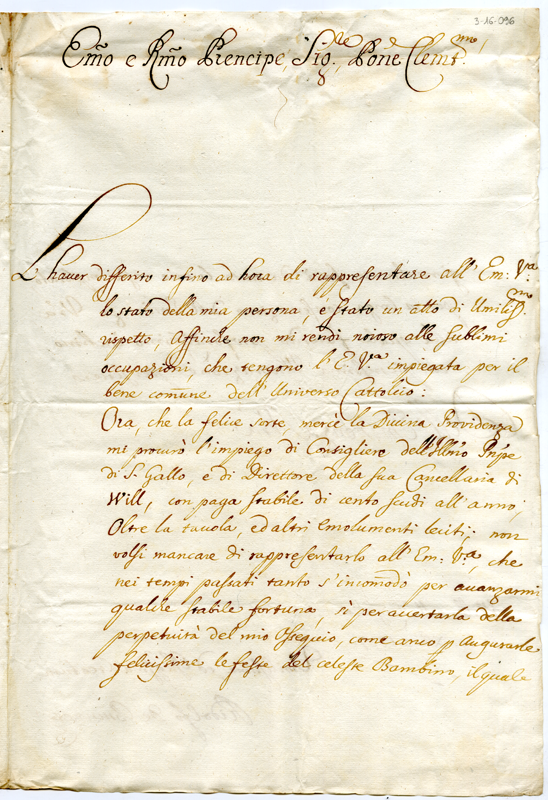 3-16-096
Emo e Rmo Prencipe, Sig.re, Pone Clemt.mo,
L'haver differito infino ad hora di rappresentare all' Em: V.a
lo stato della mia persona, è stato un atto di Umiliss.mo
rispetto, Affinche non mi rendi noioso alle sublimi
occupazioni, che tengono l' E. V.a impiegata per il
bene comune dell' Universo Cattolico:
Ora, che la felice sorte, mercè la Divina Providenza
mi procurò l' impiego di Consigliere dell' Illmo Pnpe
di S. Gallo, e di Direttore della sua Cancellaria di
Will, con paga stabile di cento scudi all' anno,
Oltre la tavola, ed altri emolumenti leciti; non
volsi mancare di rappresentarlo all' Em: V.a, che
nei tempi passati tanto s' incomodò per avanzarmi
qualche stabile fortuna, sì per accertarla della
perpetuità del mio Ossequio, come anco p Augurarle
felicissime le feste del celeste Bambino, il quale